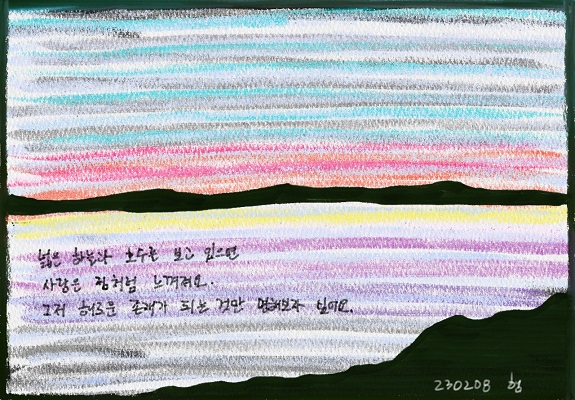 넓은 하늘과 호수를 보고 있으면
사람은 점처럼 느껴져요.
그저 해로운 존재가 되는 것만 면해보자 싶어요.
230208 형